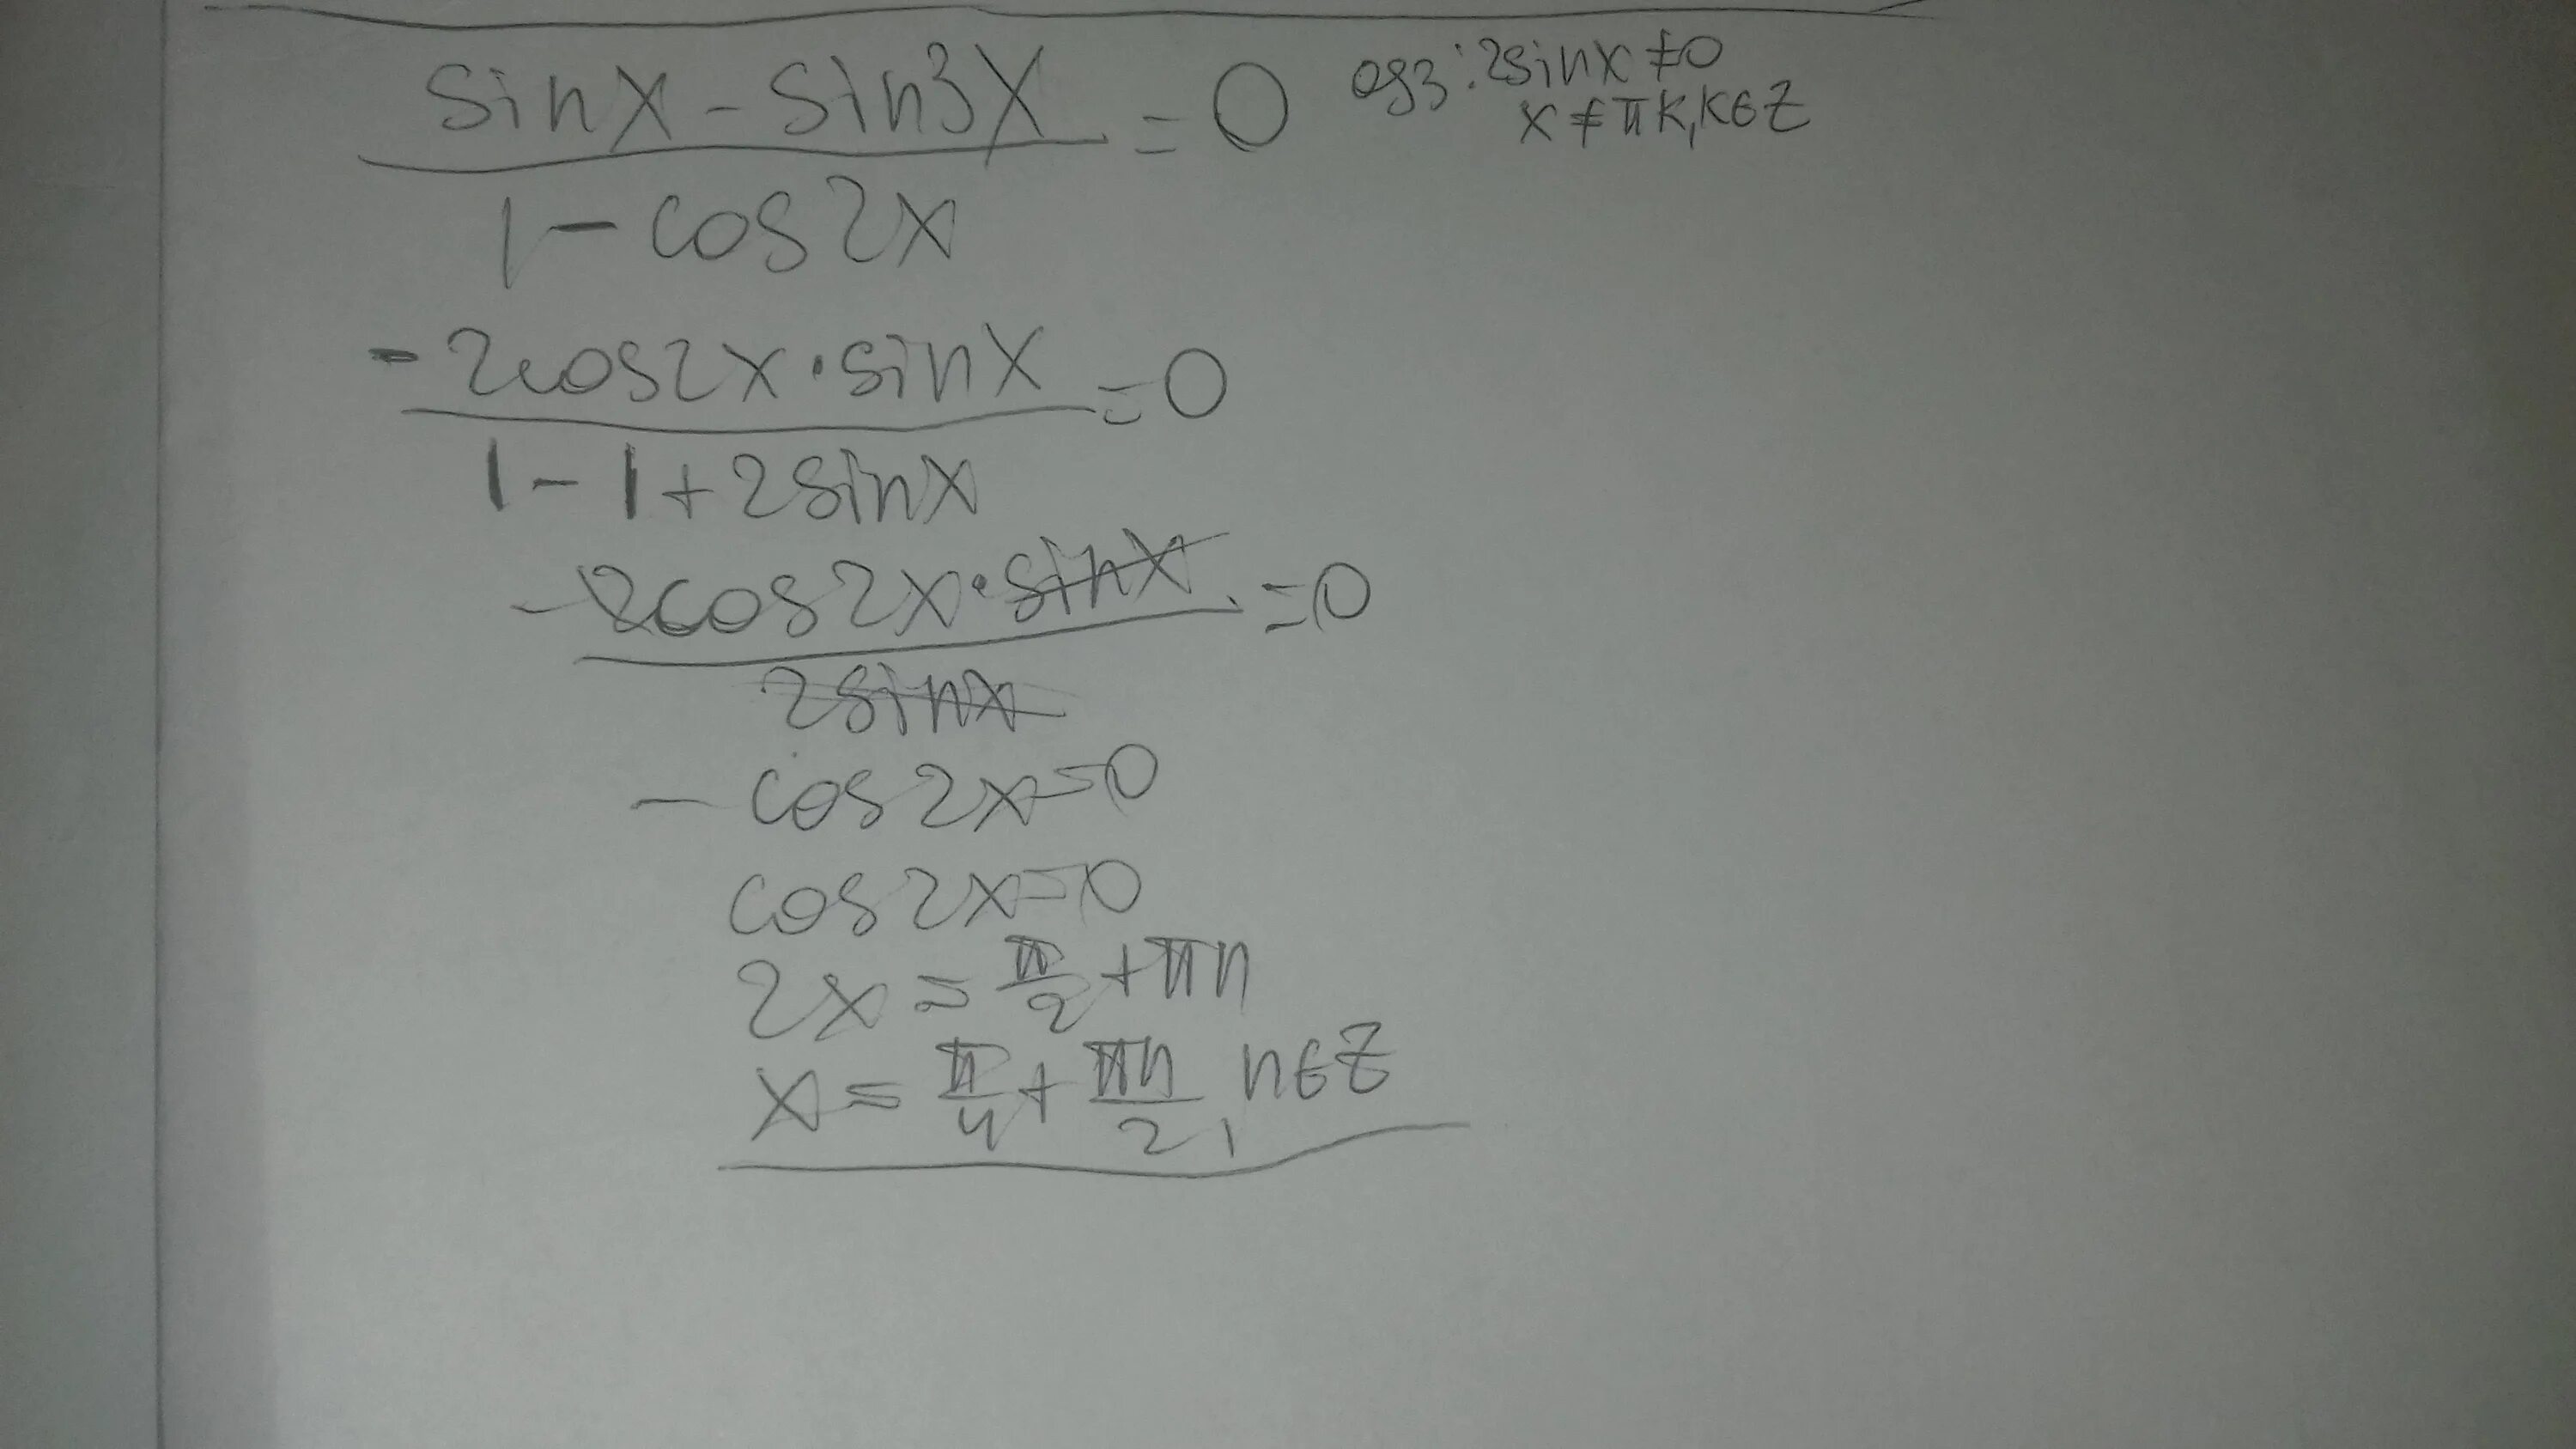 sinx - sin3x / 1 - cos2x = 0 одз: 2sinx ≠ 0
x ≠ πk, k∈Z
-2cos2x · sinx / 1 - 1 + 2sinx = 0
-2cos2x · sinx / 2sinx = 0
- cos2x = 0
cos2x = 0
2x = π/2 + πn
x = π/4 + πn/2, n∈Z